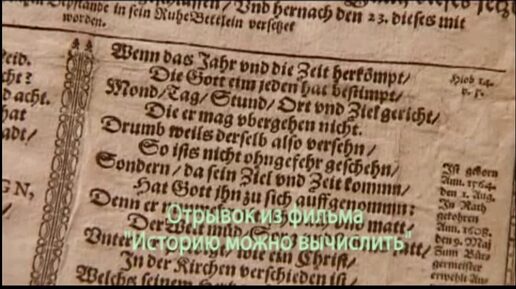 in sein RuheBettlein versetzt
Vnd hernach den 23. dieses mit
worden.
Wenn das Jahr vnd die Zeit herkömpt/
Die Gott eim jeden hat bestimpt/
Mond/Tag/Stund/Ort vnd Ziel gericht/
Die er mag vbergehen nicht.
Drumb weils derselb also versehn/
So ists nicht ohngefehr geschehn/
Sondern/da sein Ziel vnd Zeit komm̃/
Hat Gott jhn zu sich auffgenomm̃:
Denn er
matt/
Der
wie ein Christ/
In der Kirchen verschieden ist/
Welchs seinem
Hiob 14.
v. 5.
Ist geborn
Ann. 1564.
den 1. Aug.
In Rath
gekohren
Ann. 1608.
den 9. Maj
Zum Bür-
germeister
erwehlt
eid.
cht?
d acht.
hat
adt/
GN,
Отрывок из фильма
"Историю можно вычислить"